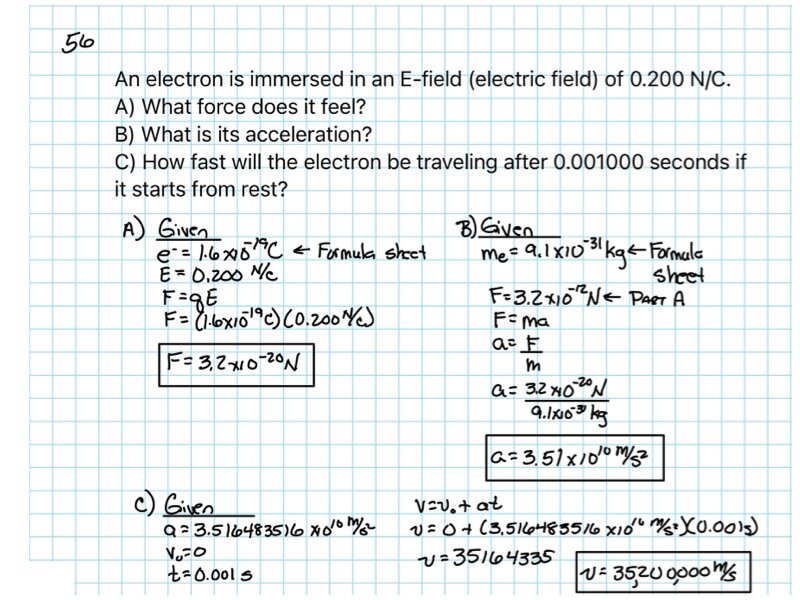 56
An electron is immersed in an E-field (electric field) of 0.200 N/C.
A) What force does it feel?
B) What is its acceleration?
C) How fast will the electron be traveling after 0.001000 seconds if
it starts from rest?
A) Given
e⁻ = 1.6 x10⁻¹⁹C ← Formula sheet
E = 0.200 N/C
F = qE
F = (1.6x10⁻¹⁹C)(0.200 N/C)
F = 3.2x10⁻²⁰N
B) Given
me = 9.1x10⁻³¹kg ← Formula
sheet
F = 3.2x10⁻¹²N ← PART A
F = ma
a = F
m
a = 3.2 x10⁻²⁰N
9.1x10⁻³¹ kg
a = 3.51x10¹⁰ m/s²
C) Given
a = 3.516483516 x10¹⁰ m/s²
V₀=0
t=0.001 s
V=V₀+ at
v = 0 + (3.516483516 x10¹⁰ m/s²)(0.001s)
v = 35164335
v = 35,200,000 m/s